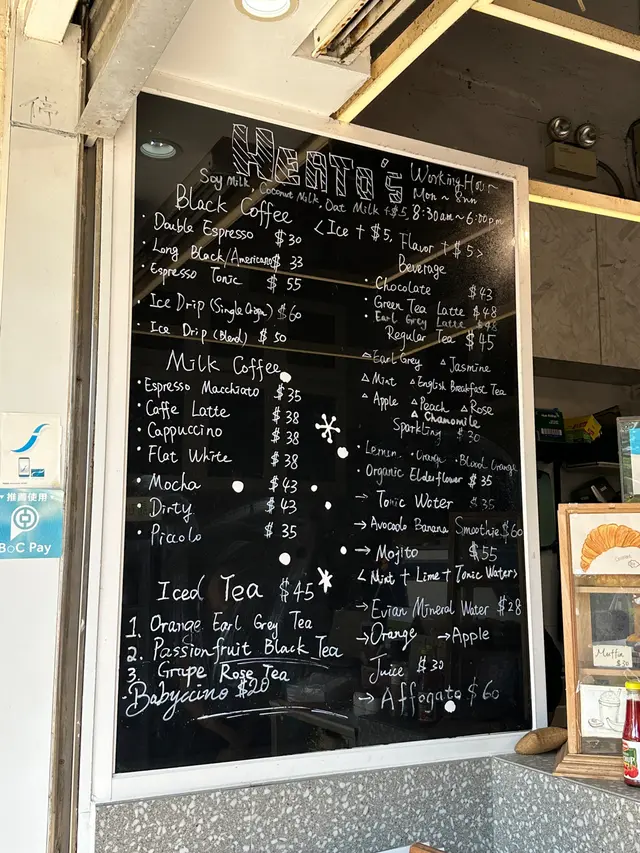 HEATO's
Working Hour
Mon ~ Sun
8:30am ~ 6:00pm
Soy Milk, Coconut Milk, Oat Milk +$5,
<Ice + $5, Flavor + $5>
Black Coffee
· Double Espresso $30
· Long Black/Americano $33
· Espresso Tonic $55
· Ice Drip (Single Origin) $60
· Ice Drip (Blend) $50
Milk Coffee
· Espresso Macchiato $35
· Caffe Latte $38
· Cappuccino $38
· Flat White $38
· Mocha $43
· Dirty $43
· Piccolo $35
Iced Tea $45
1. Orange Earl Grey Tea
2. Passionfruit Black Tea
3. Grape Rose Tea
· Babyccino $20
Beverage
· Chocolate $43
· Green Tea Latte $48
· Earl Grey Latte $48
Regular Tea $45
△ Earl Grey △ Jasmine
△ Mint △ English Breakfast Tea
△ Apple △ Peach △ Rose
△ Chamomile
Sparkling $30
· Lemon · Orange · Blood Orange
· Organic Elderflower $35
→ Tonic Water $35
→ Avocado Banana Smoothie $60
→ Mojito $55
<Mint + Lime + Tonic Water>
→ Evian Mineral Water $28
→ Orange → Apple
Juice $30
→ Affogato $60
推薦使用
BoC Pay
Muffin
$30